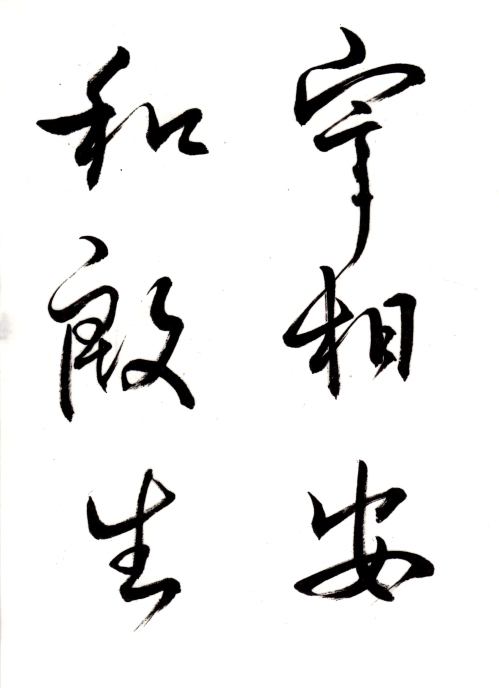 宇相安
和殿生